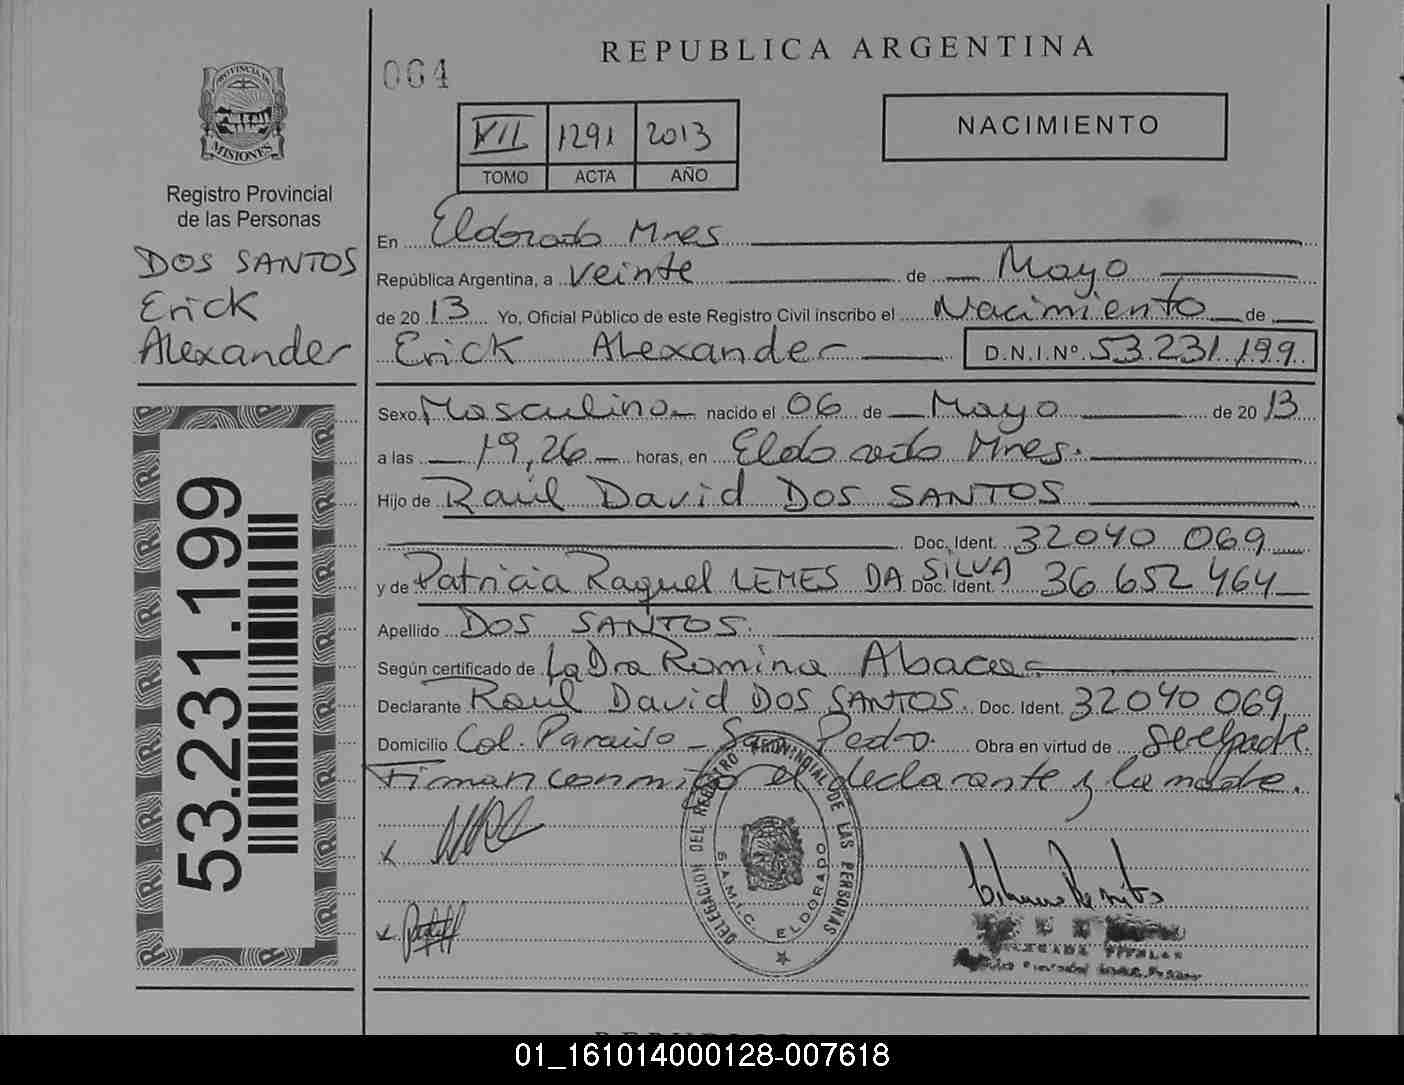 064
REPUBLICA ARGENTINA
PROVINCIA DE
MISIONES
Registro Provincial
de las Personas
DOS SANTOS
Erick
Alexander
53.231.199
VII 1291 2013
TOMO ACTA AÑO
NACIMIENTO
En Eldorado Mnes
República Argentina, a Veinte de Mayo
de 20 13 Yo, Oficial Público de este Registro Civil inscribo el Nacimiento de
Erick Alexander D.N.I.Nº 53.231.199
Sexo Masculino nacido el 06 de Mayo de 20 13
a las 19,26 horas, en Eldorado Mnes.
Hijo de Raúl David DOS SANTOS
Doc. Ident. 32040 069
y de Patricia Raquel LEMES DA SILVA Doc. Ident. 36 652 464
Apellido DOS SANTOS.
Según certificado de La Dra Romina
Declarante Raúl David DOS SANTOS. Doc. Ident. 32040 069
Domicilio Col. Paraiso - San Pedro. Obra en virtud de Ser el padre.
Firman conmigo el declarante y la madre.
DELEGACION DEL REGISTRO PROVINCIAL DE LAS PERSONAS
S.A.M.I.C. ELDORADO
x
x
01_161014000128-007618